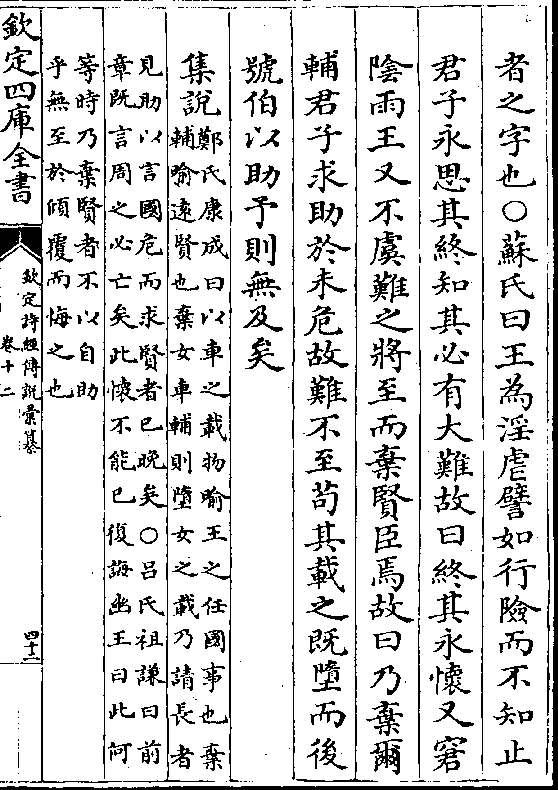 者之字也○蘇氏曰王為淫虐譬如行險而不知止
君子永思其終知其必有大難故曰終其永懷又窘
陰雨王又不虞難之將至而棄賢臣焉故曰乃棄爾
輔君子求助於未危故難不至苟其載之既墮而後
號伯以助予則無及矣
集說
鄭氏康成曰以車之載物喻王之任國事也棄
輔喻逺賢也棄女車輔則墮女之載乃請長者
見助以言國危而求賢者已晚矣○吕氏祖謙曰前
章既言周之必亡矣此懷不能已復誨幽王曰此何
等時乃棄賢者不以自助
乎無至於傾覆而悔之也
欽定四庫全書
欽定詩經傳說彙纂
卷十二
四十二